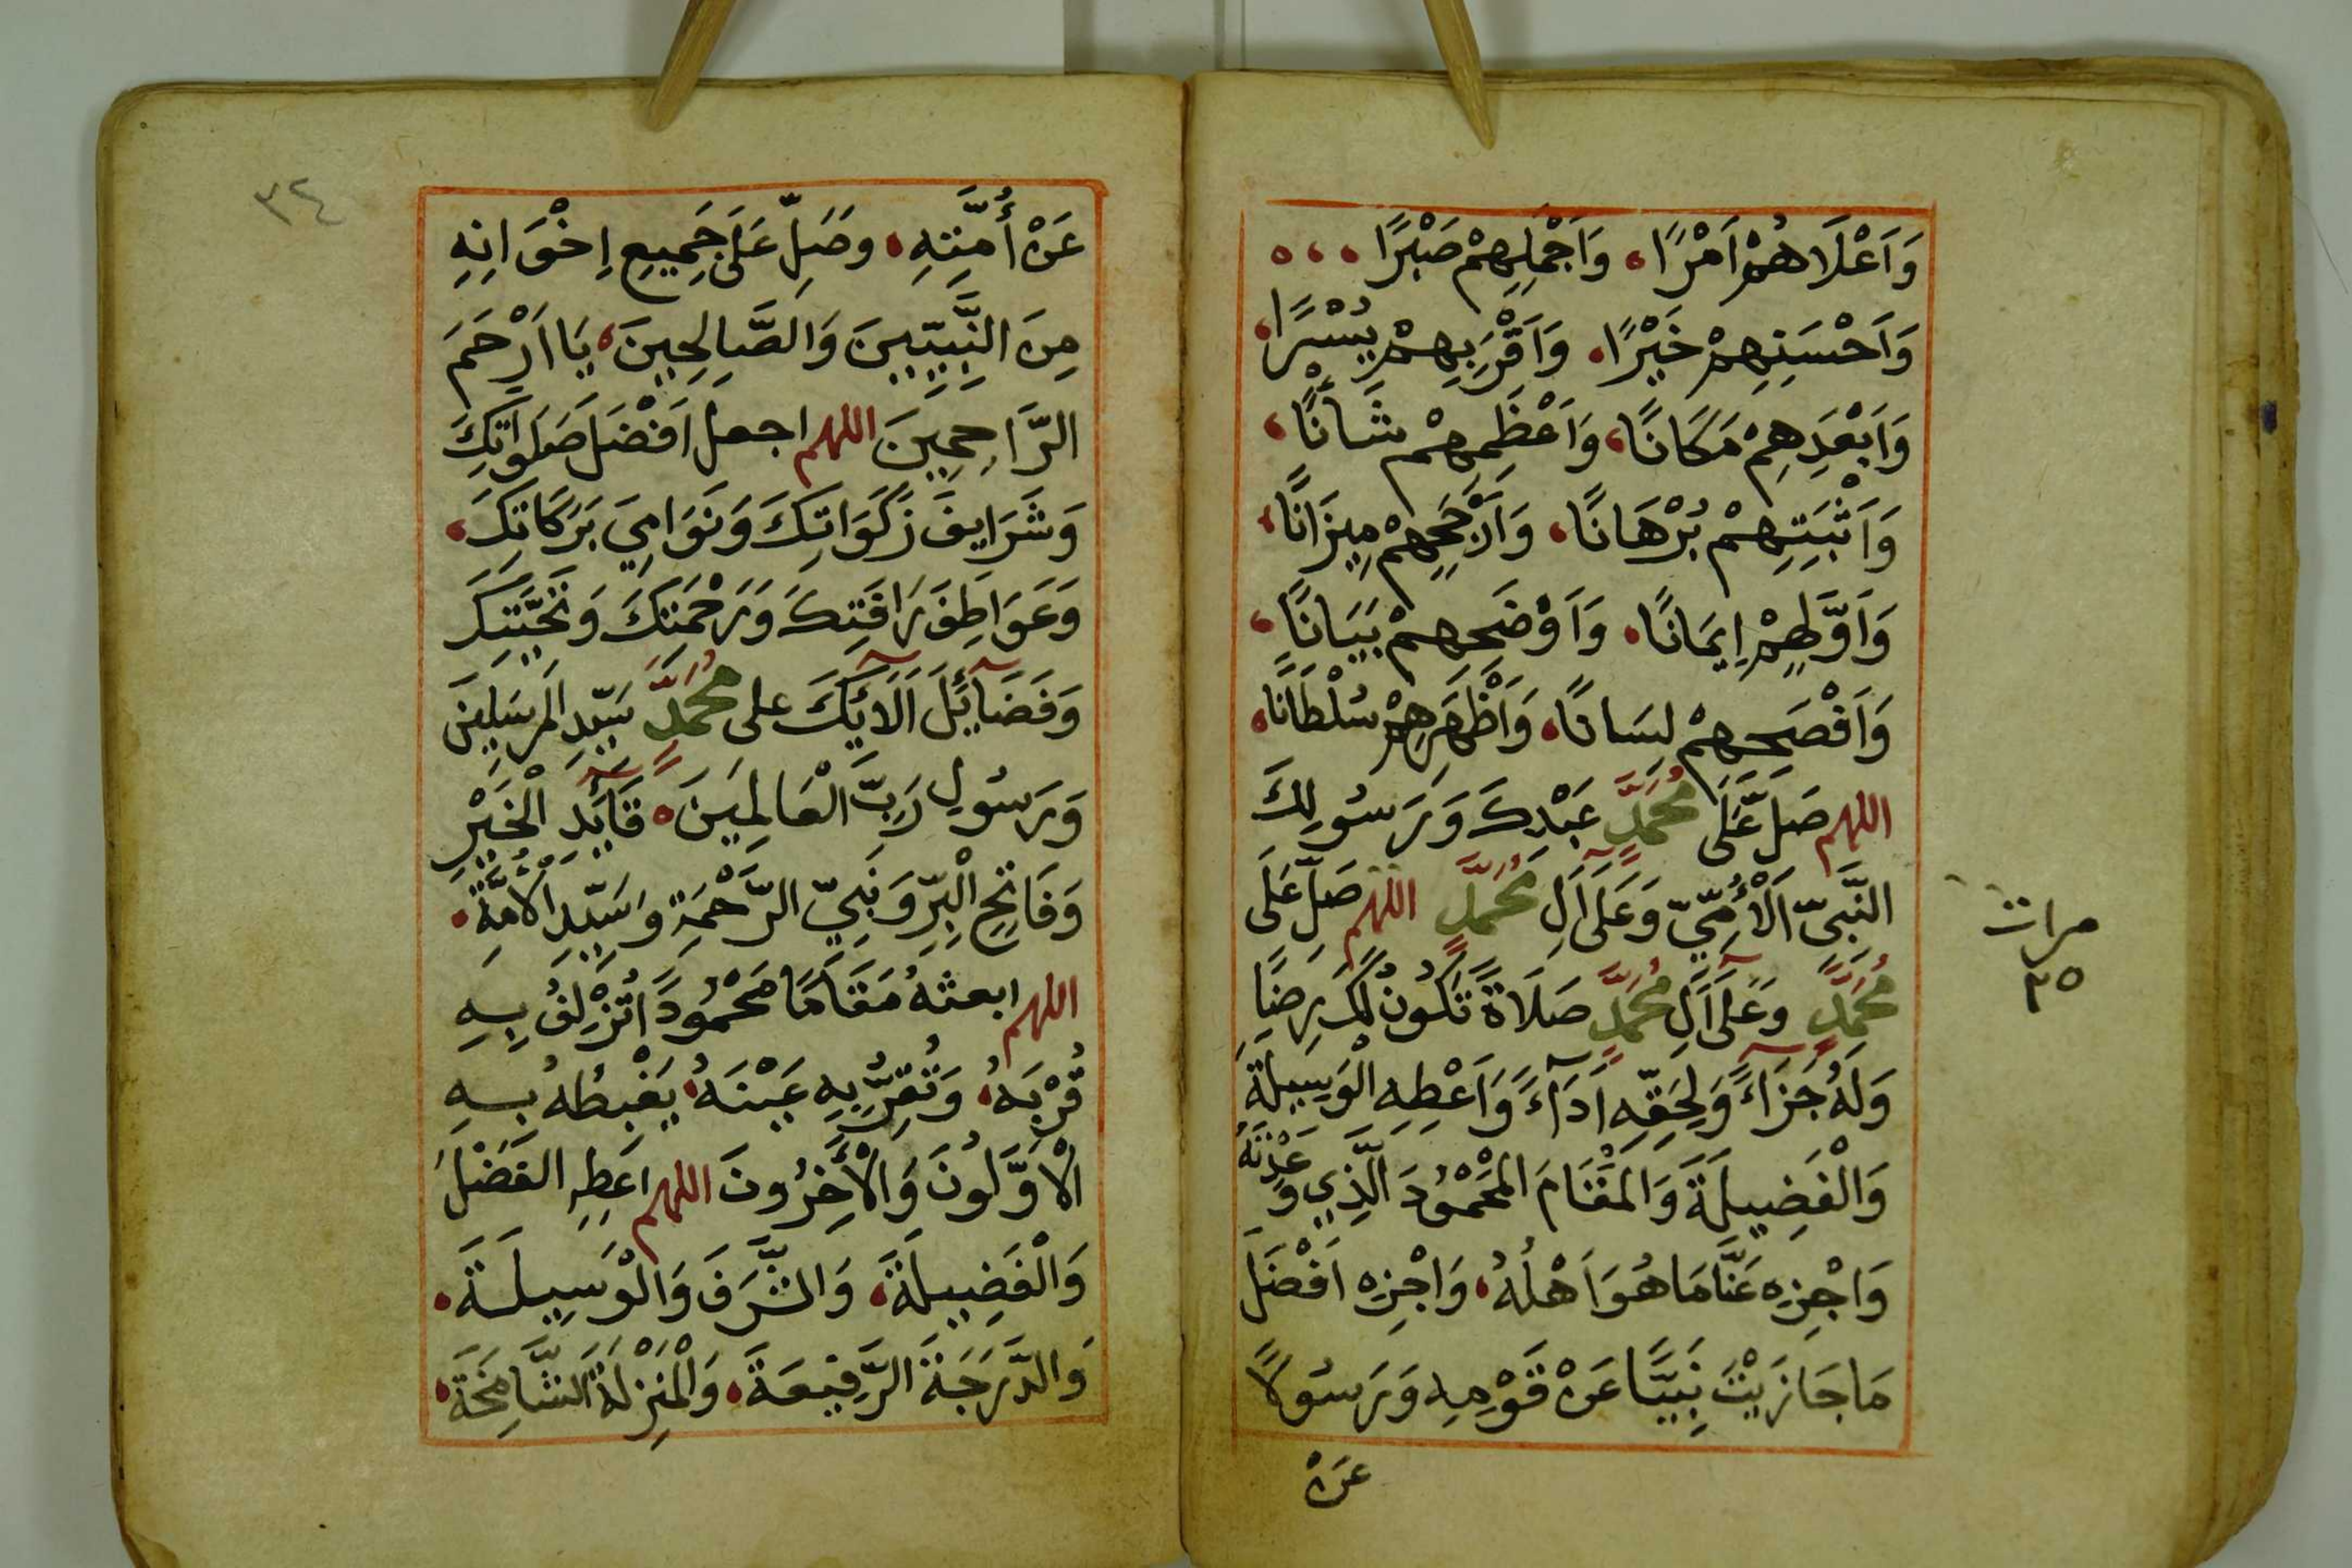 وَاَعْلَاهُمْ اَمْرًا، وَاَجْمَلِهِمْ صَبْرًا
وَاَحْسَنِهِمْ خَيْرًا، وَاَقْرَبِهِمْ يُسْرًا،
وَاَبْعَدِهِمْ مَكَانًا، وَاَعْظَمِهِمْ شَأنًا،
وَاَثْبَتِهِمْ بُرْهَانًا، وَاَرْجَحِهِمْ مِيزَانًا،
وَاَوَّلِهِمْ اِيمَانًا، وَاَوْضَحِهِمْ بَيَانًا،
وَاَفْصَحِهِمْ لِسَانًا، وَاَظْهَرِهِمْ سُلْطَانًا،
اللهم صَلِّ عَلَى مُحَمَّدٍ عَبْدِكَ وَرَسُولِكَ
النَّبِيِّ الْأُمِّيِّ وَعَلَى اٰلِ مُحَمَّدٍ اللهم صَلِّ عَلَى
مرات
٣٥
مُحَمَّدٍ وَعَلَى اٰلِ مُحَمَّدٍ صَلَاةً تَكُونُ لَكَ رِضًا
وَلَهُ جَزَاءً وَلِحَقِّهِ اَدَاءً وَاَعْطِهِ الْوَسِيلَةَ
وَالْفَضِيلَةَ وَالْمَقَامَ الْمَحْمُودَ الَّذِي وَعَدْتَهُ
وَاجْزِهِ عَنَّا مَا هُوَ اَهْلُهُ، وَاجْزِهِ اَفْضَلَ
مَا جَازَيْتَ نَبِيًّا عَنْ قَوْمِهِ وَرَسُولًا
عَنْ
٣٤
عَنْ أُمَّتِهِ، وصَلِّ عَلَى جَمِيعِ اِخْوَانِهِ
مِنَ النَّبِيِّينَ وَالصَّالِحِينَ، يَا اَرْحَمَ
الرَّاحِمِينَ اللهم اجعل اَفْضَلَ صَلَوَاتِكَ
وَشَرَايِفَ زَكَوَاتِكَ وَنَوَامِيَ بَرَكَاتِكَ،
وَعَوَاطِفَ رَافَتِكَ وَرَحْمَتِكَ وَتَحِيَّتِكَ
وَفَضَائِلَ اٰلَائِكَ على مُحَمَّدٍ سَيِّدِ الْمُرسَلِينَ
وَرَسُولِ رَبِّ الْعَالَمِينَ، قَائِدِ الْخَيْرِ
وَفَاتِحِ الْبِرِّ وَنَبِيِّ الرَّحْمَةِ وَسَيِّدِ الْأُمَّةِ،
اللهم ابعثهُ مَقَامًا مَحْمُودًا تُزْلِفُ بِهِ
قُرْبَهُ، وَتُقِرُّ بِهِ عَيْنَهُ، يَغْبِطُهُ بِهِ
الْاَوَّلُونَ وَالْاٰخِرُونَ اللهم اَعْطِهِ الْفَضْلَ
وَالْفَضِيلَةَ، وَالشَّرَفَ وَالْوَسِيلَةَ،
وَالدَّرَجَةَ الرَّفِيعَةَ، وَالْمَنْزِلَةَ الشَّامِخَةَ،